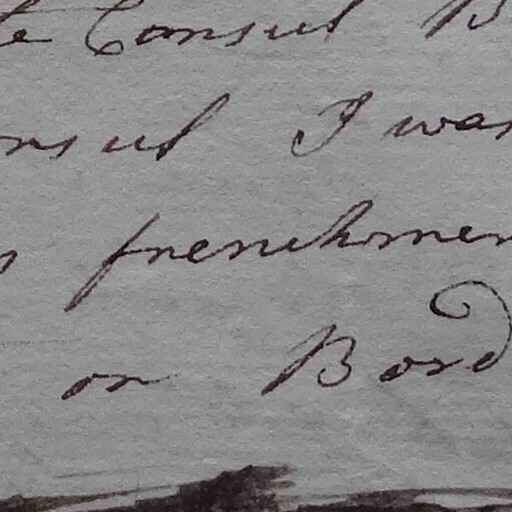 te Consul B
nsul I was
frenchmen
on Bord